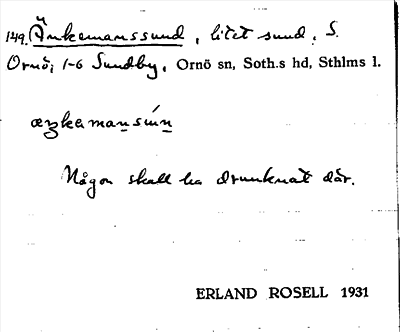 149. Änkemanssund, litet sund, S.
Ornö, 1-6 Sundby, Ornö sn, Soth.s hd, Sthlms l.
Någon skall ha drunknat där.
ERLAND ROSELL 1931